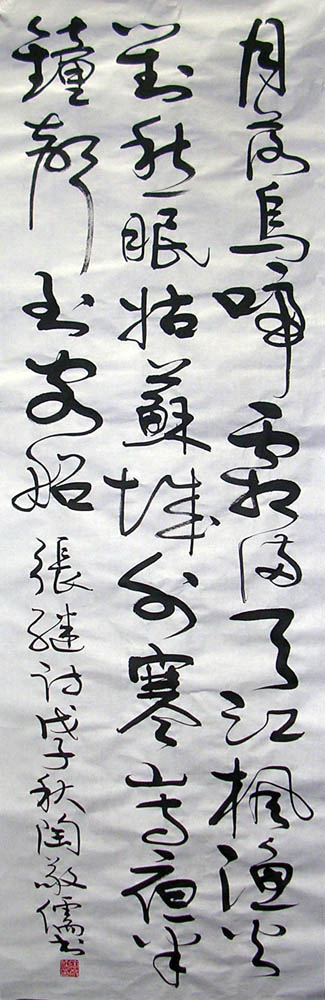 月落烏啼霜满天江楓漁火
對愁眠姑蘇城外寒山寺夜半
鐘聲到客船
張继诗戊子秋陶敬儒书